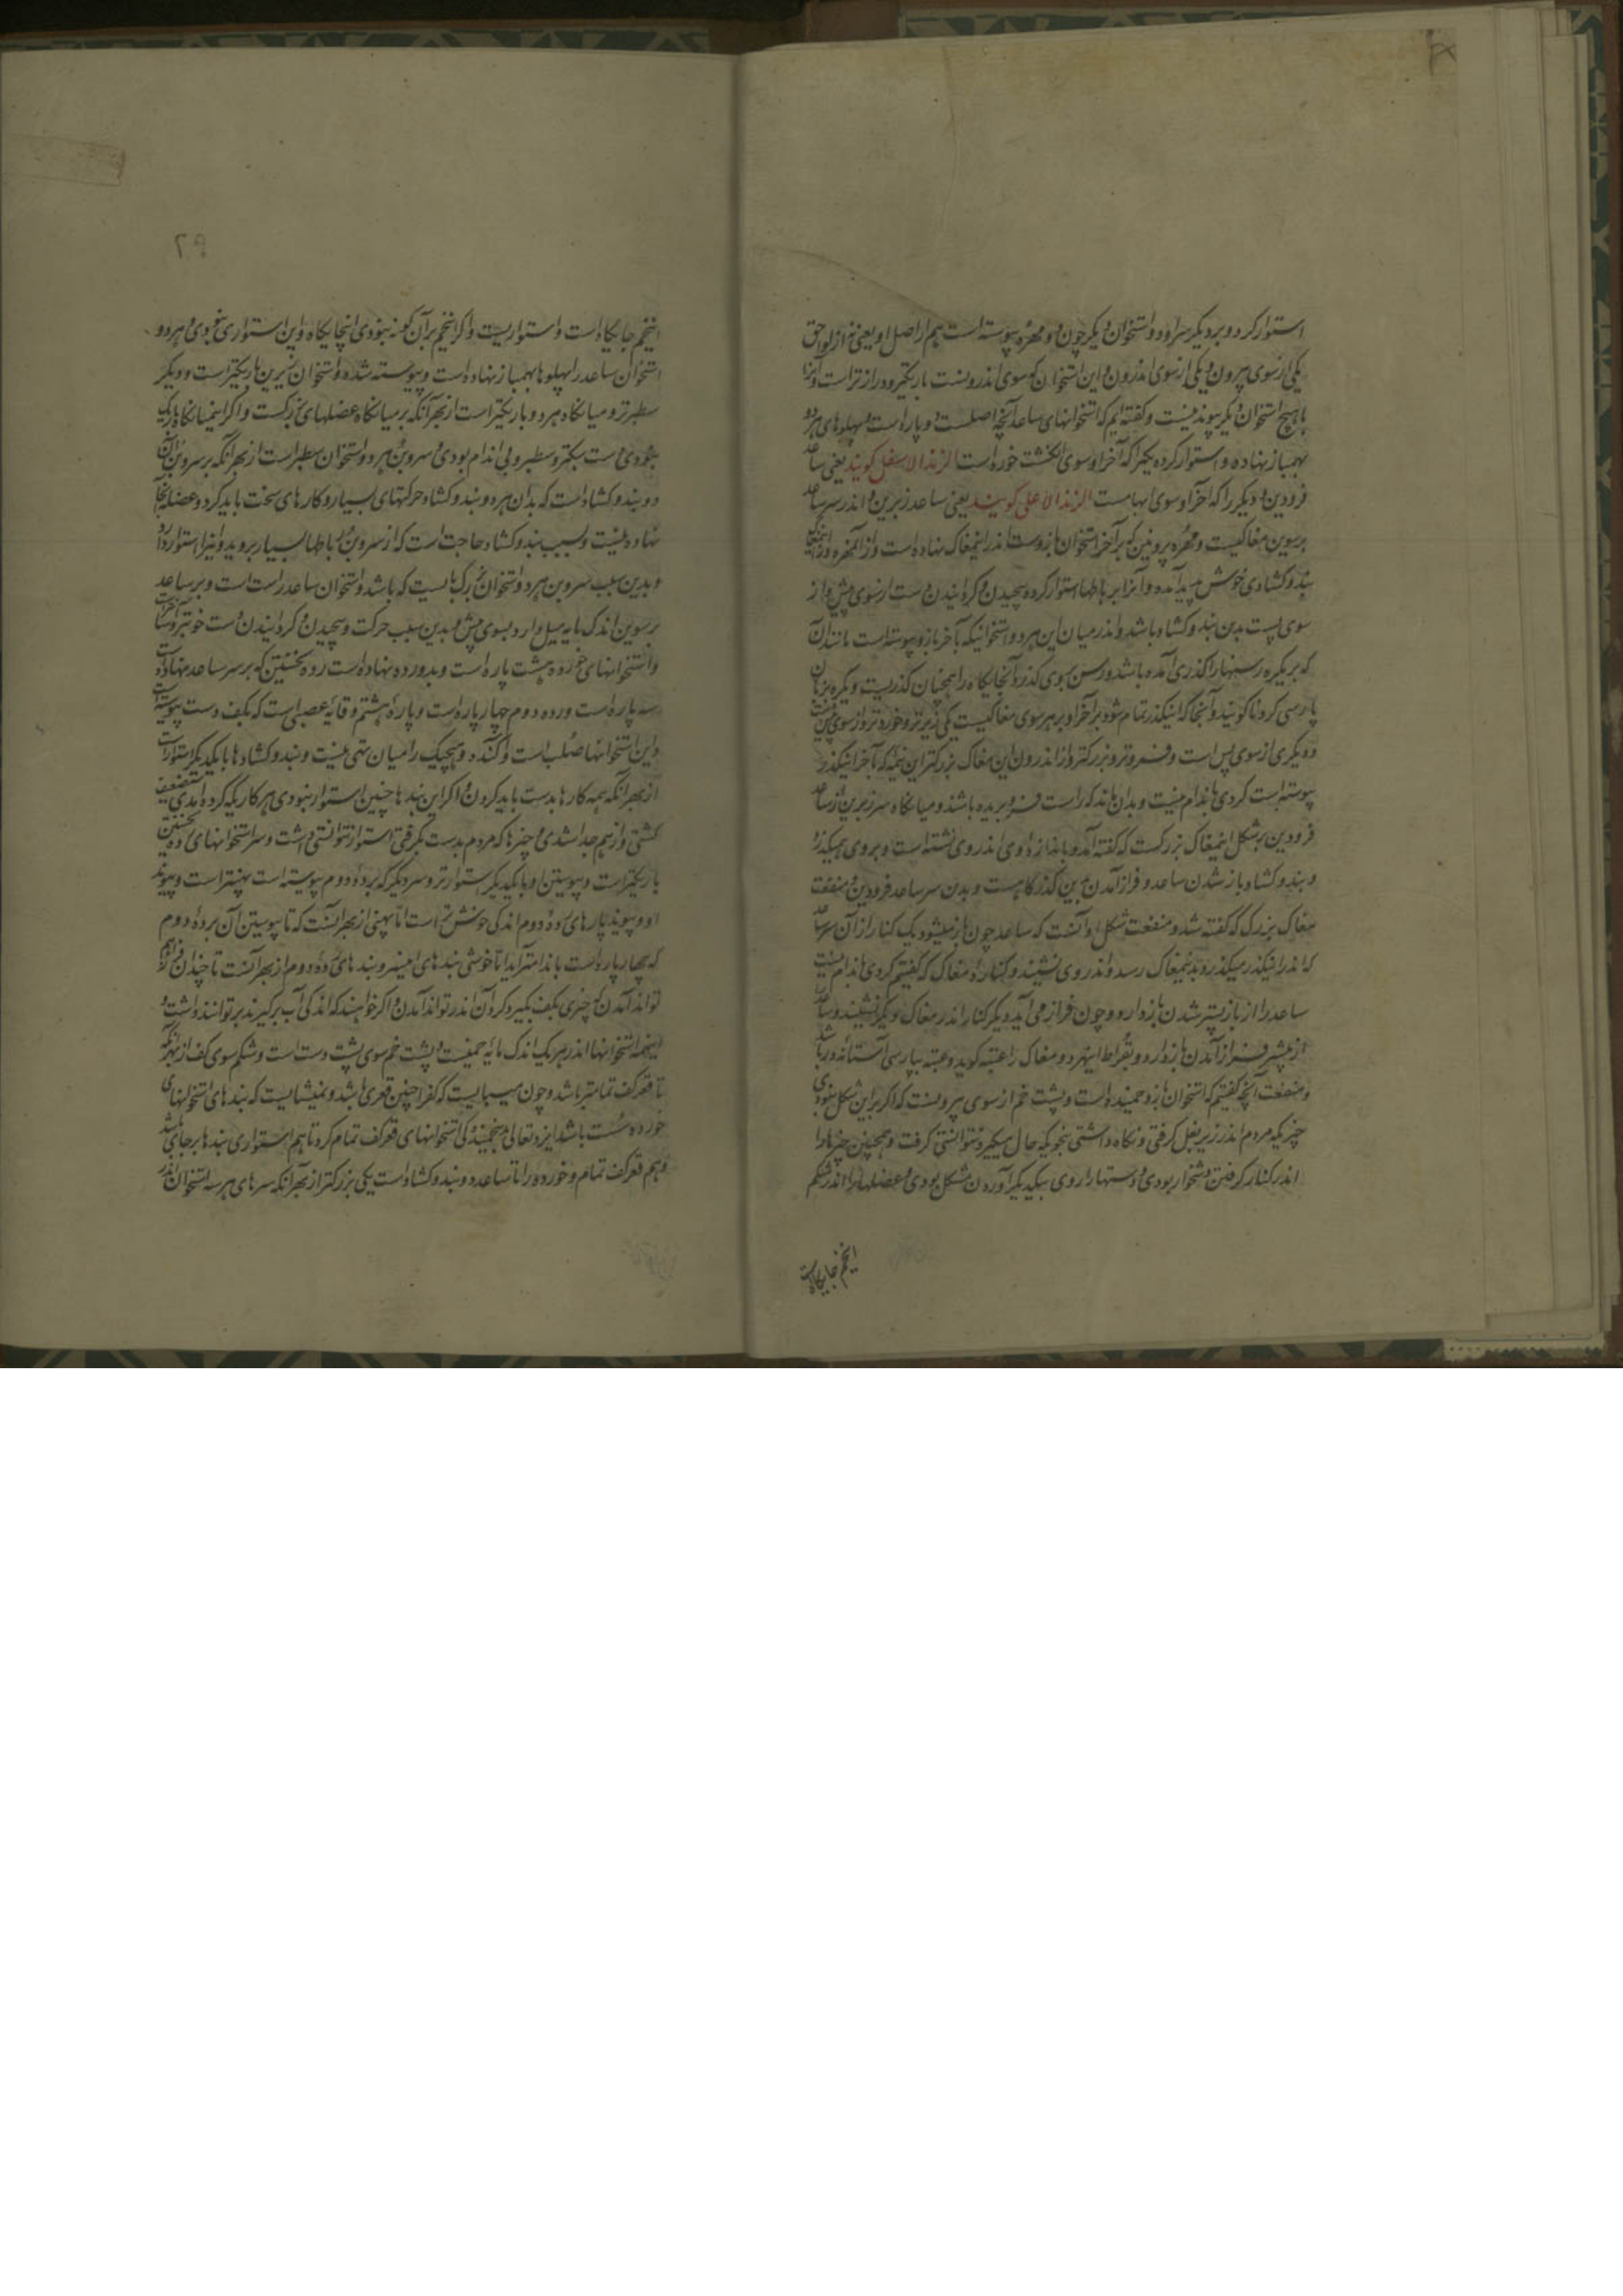 استوار کرد و بر دیگر سر او دو استخوان دیگر چون دو مهره پیوسته است هم از اصل او یعنی نه از لواحق
یکی از سوی بیرون و یکی از سوی اندرون و این استخوان که سوی اندرونست باریکتر و درازتر است و آنرا
با هیچ استخوان دیگر پیوند نیست و گفته ایم که استخوانهای ساعد آنچه اصلست دو پاره است و پهلوهای هر دو
بهم باز نهاده و استوار کرده یکیرا که آخر او سوی انگشت خورد است الزند الاسفل گویند یعنی ساعد
فرودین و دیگر را که آخر او سوی ابهامست الزند الاعلی گویند یعنی ساعد زبرین و اندر سر ساعد
برسوین مغاکیست و مهره برونین که بر آخر استخوان بازوست اندر اینمغاک نهاده است و از آنمهره و از اینمغاک
بند و کشادی خوش پدید آمده و آنرا برباطها استوار کرده پیچیدن و گردانیدن دست از سوی پیش و از
سوی پست بدین بند و کشاد باشد و اندر میان این هر دو استخوانیکه بآخر بازو پیوسته است مانند آن
که بر بکره رسنها را گذری آمده باشد و رسن بوی گذرد آنجایگاه را همچنان گذریست و بکره بزبان
پارسی گردنا گویند و آنجا که اینگذر تمام شود بر آخر او بر هر سوی مغاکیست یکی زیرتر و خوردتر و از سوی پیشست
و دیگری از سوی پس است و فروتر و بزرگتر و از اندرون این مغاک بزرگتر این نیمه که بآخر اینگذر
پیوسته است گردی باندام نیست و بدان ماند که راست فرو بریده باشند و میانگاه سر زبرین از ساعد
فرودین بر شکل اینمغاک بزرگست که گفته آمد و باندازه اوی اندر وی نشسته است و بروی همیگذرد
و بند و کشاد باز شدن ساعد و فراز آمدن بدین گذرگاهست و بدین سر ساعد فرودین و منفعت
مغاک بزرگ که گفته شد و منفعت شکل او آنست که ساعد چون باز میشود یک کنار از آن سر ساعد
که اندر اینگذر میگذرد بدینمغاک رسد و اندر وی نشیند و کناره مغاک که گفتیم گردی باندام نیست
ساعد را از باز پستر شدن باز دارد و چون فراز می آید دیگر کنار اندر مغاک دیگر نشیند و ساعد
از پیشتر فراز آمدن باز دارد و بقراط اینهر دو مغاک را عتبه گوید و عتبه بپارسی آستانه در باشد
و منفعت آنچه گفتیم که استخوان بازو خمیده است و پشت خم از سوی بیرونست که اگر بر این شکل نبودی
چیزیکه مردم اندر زیر بغل گرفتی و نگاه داشتی بخوبیکه حال میگیرد نتوانستی گرفت و همچنین چیزها را
اندر کنار گرفتن دشخوار بودی و دستها را روی بیکدیگر آوردن مشکل بودی و عضلها را اندر شکم
اینخم جایگاه است
۲۹
اینخم جایگاه است و استواریست و اگر اینخم بر آن گونه نبودی اینجایگاه و این استواری نبودی و هر دو
استخوان ساعد را پهلوها بهم باز نهاده است و پیوسته شده و استخوان زبرین باریکتر است و دیگر
سطبرتر و میانگاه هر دو باریکتر است از بهر آنکه بر میانگاه عضلهای بزرگست و اگر اینمیانگاه باریک
نبودی دست سبکتر و سطبر و بی اندام بودی و سر و بن هر دو استخوان سطبر است از بهر آنکه بر سر و بن آن
دو بند و کشاد است که بدان هر دو بند و کشاد حرکتهای بسیار و کارهای سخت باید کرد و عضله آنجا
نهاده نیست و بسبب بند و کشاد حاجت است که از سر و بن رباطها بسیار بروید و نیز استوار دارد
و بدین سبب سر و بن هر دو استخوان بزرگ بایست که باشد و استخوان ساعد راست است و بر ساعد
برسوین اندک مایه میل دارد بسوی پیش و بدین سبب حرکت و پیچیدن و گردانیدن دست خوبتر و آسانتر است
و استخوانهای خورده هشت پاره است و بدو رده نهاده است رده نخستین که بر سر ساعد نهاده است
سه پاره است و رده دوم چهار پاره است و پاره هشتم وقایه عصبی است که بکف دست پیوسته است
و این استخوانها صلب است و آکنده و هیچیک را میان تهی نیست و بند و کشادها با یکدیگر استوار است
از بهر آنکه همه کارها بدست باید کردن و اگر این بندها چنین استوار نبودی هر کاریکه کرده آمدی ضعیف
گشتی و از هم جدا شدی و چیزها که مردم بدست گرفتی استوار نتوانستی داشت و سر استخوانهای رده نخستین
باریکتر است و پیوستن او با یکدیگر استوارتر و سر دیگر که برده دوم پیوسته است پهنتر است و پیوند
او و پیوند پارهای رده دوم اندکی خوش تر است اما پهنی از بهر آنست که تا پیوستن آن برده دوم
که چهار پاره است باندامتر آید اما خوشی بندهای این سر و بندهای رده دوم از بهر آنست تا چندان فراهم
تواند آمدن که چیزی بکف بگیرد گرد آن اندر تواند آمدن و اگر خواهند که اندکی آب برگیرند برتوانند داشت و
اینهمه استخوانها اندر هر یک اندک مایه خمیست و پشت خم سوی پشت دست است و شکم سوی کف از بهر آنکه
تا قعر کف تمامتر باشد و چون میبایست که کف را چنین قعری باشد و نمیشایست که بندهای استخوانهای
خورده سست باشد ایزد تعالی بدینخمیدگی استخوانهای قعر کف تمام کرد تا هم استواری بندها بر جای باشد
و هم قعر کف تمام و خورده را تا ساعد دو بند و کشاد است یکی بزرگتر از بهر آنکه سرهای هر سه استخوان اندر